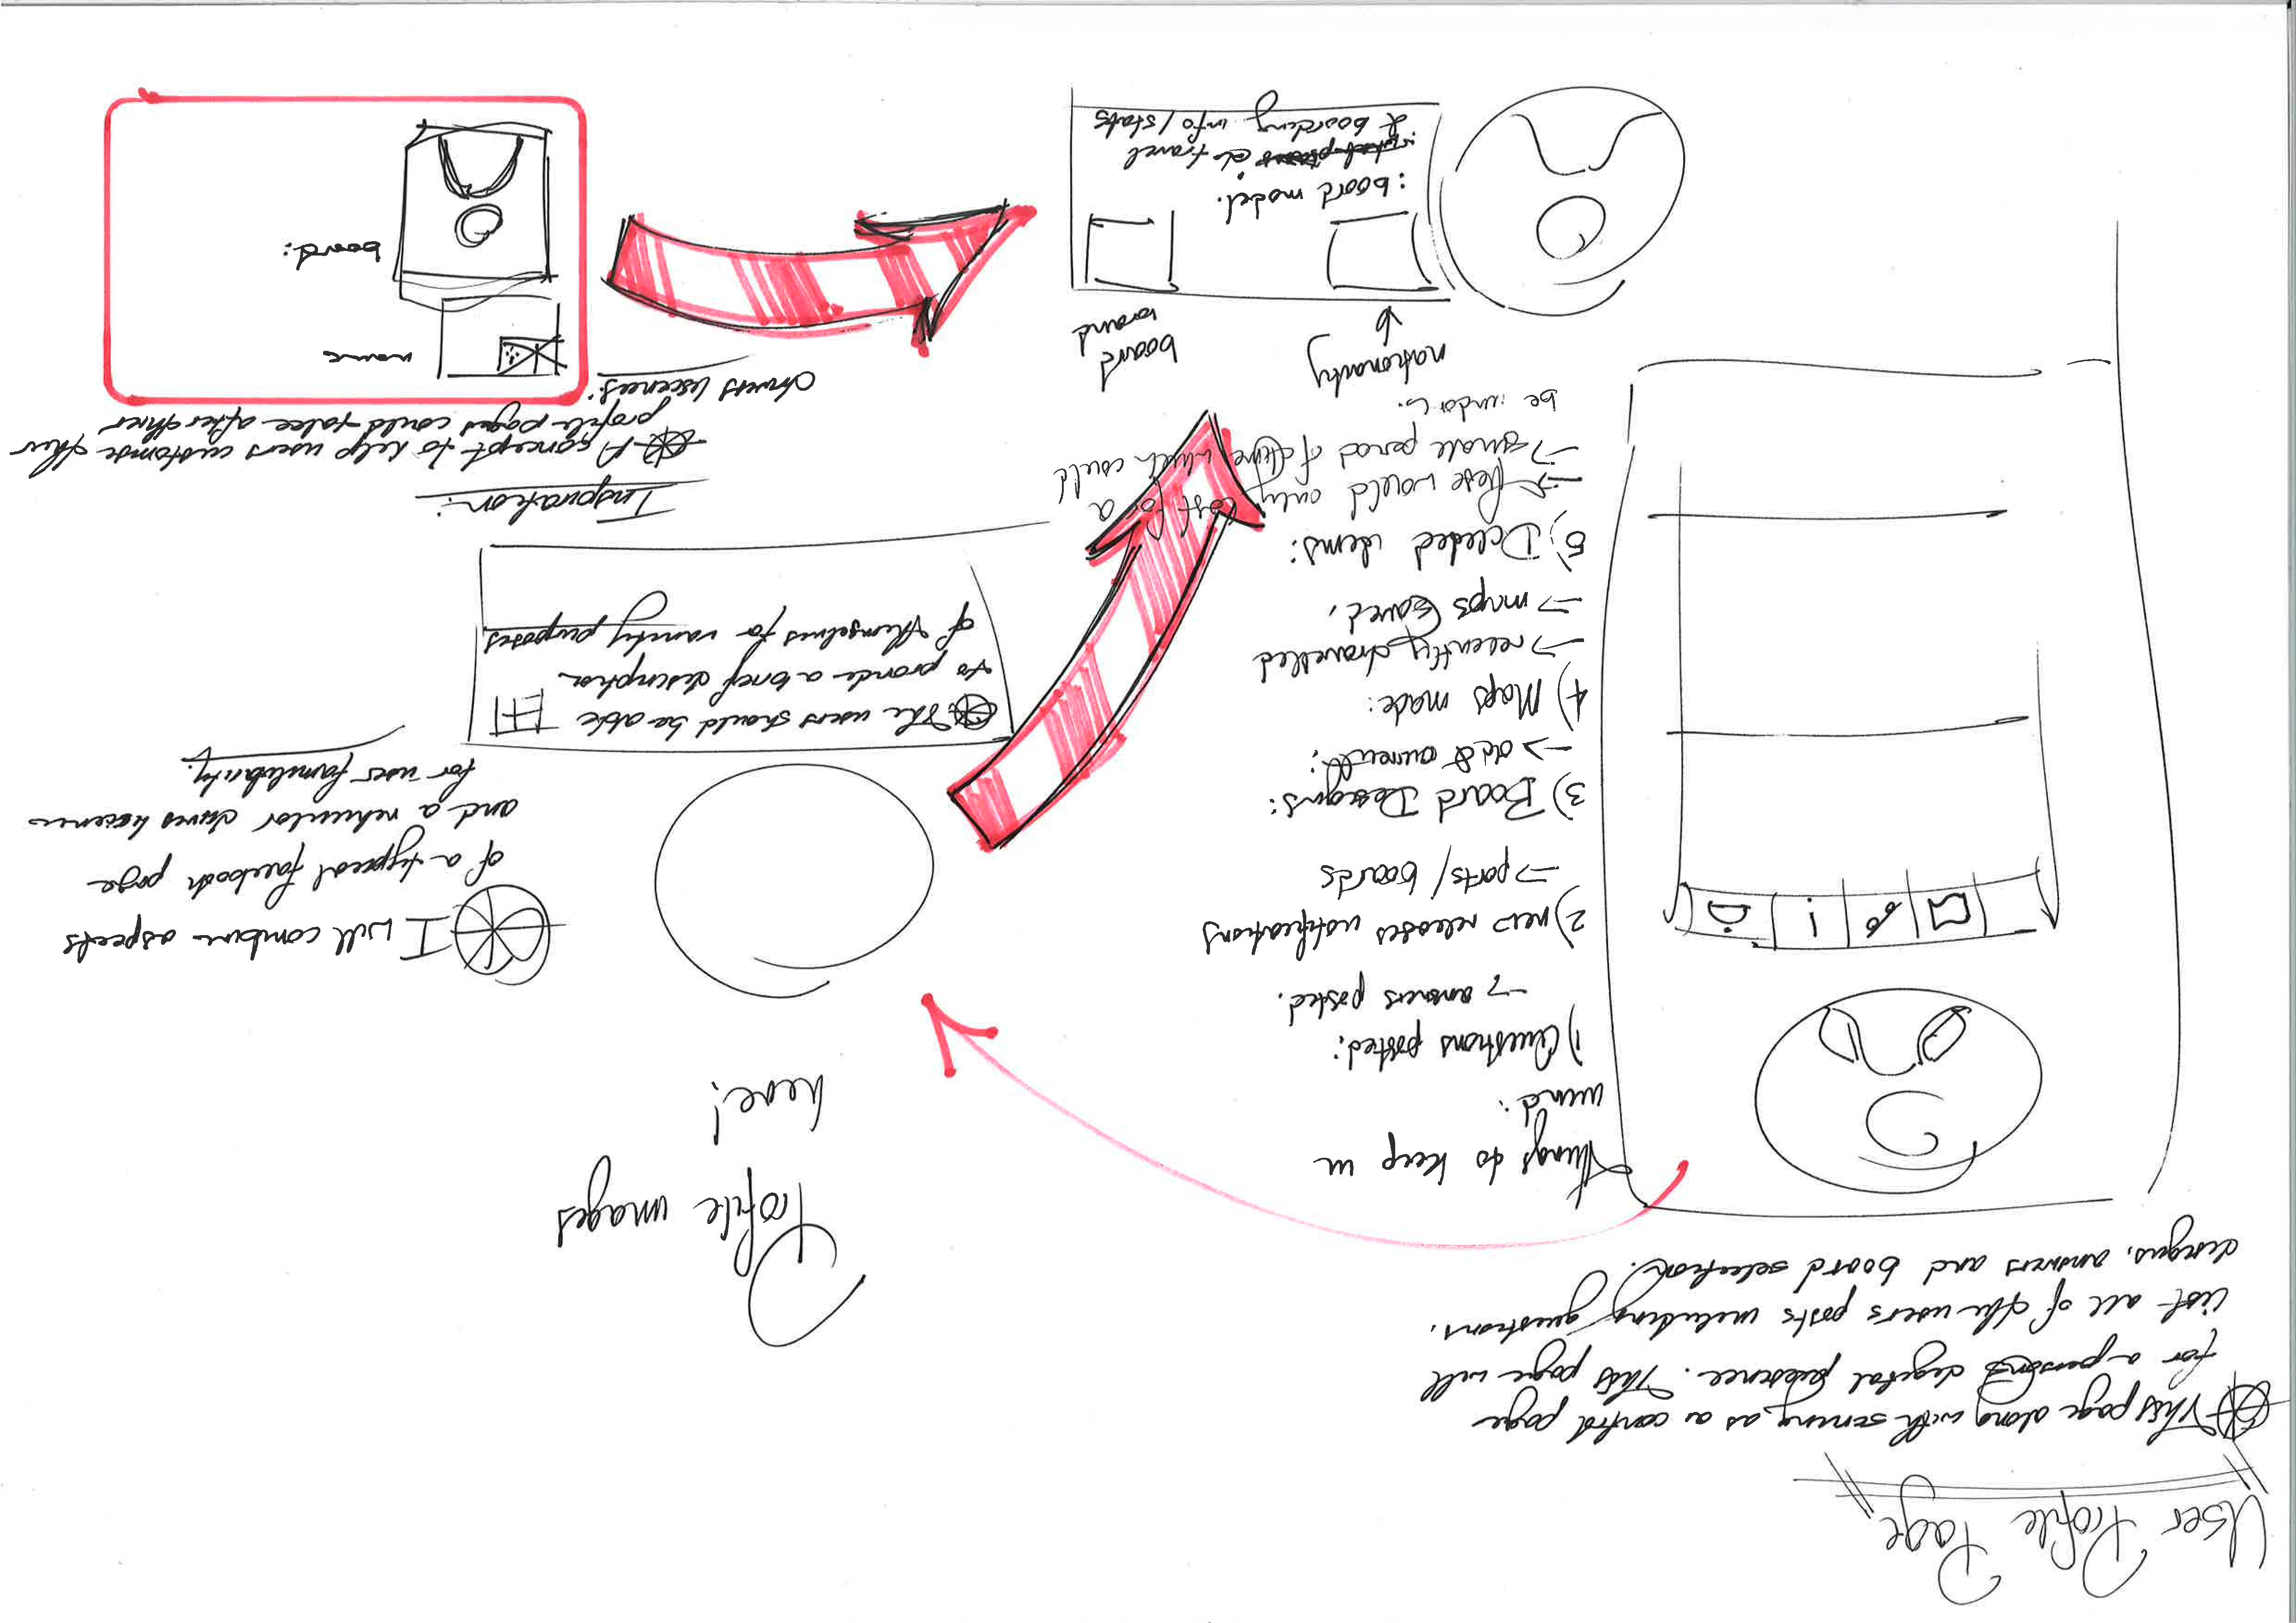 User Profile Page
This page along with serving as a control page
for a persons digital presence. This page will
list all of the users posts including questions.
designs, answers and board selection.
Things to keep in
mind:
1) Questions posted:
→ answers posted.
2) new releases notifications
→ parts/ boards
3) Board Designs:
→ old & current:
4) Maps made:
→ recently travelled
→ maps saved.
5) Deleted items:
→ these would only last for a
→ small period of time which could
be undone.
Profile images
here!
I will combine aspects
of a typical facebook page
and a vehicular
for user familularity.
The users should be able
to provide a brief description
of themselves for vanity purposes.
Inspiration:
A concept to help users customise their
profile pages could take after thier
drivers liscences:
name
board:
nationaity
board
brand
: board model.
travel
& boarding info/stats